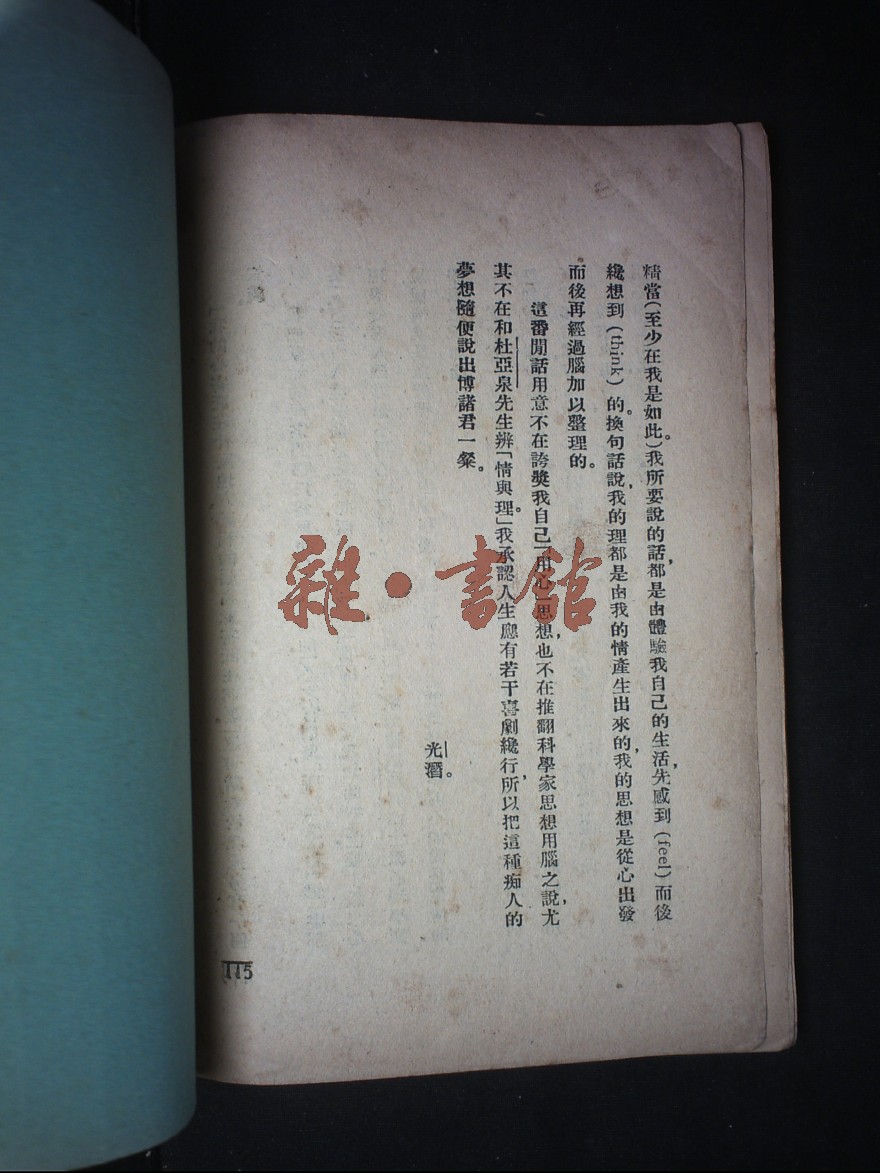 精當(至少在我是如此。)我所要說的話,都是由體驗我自己的生活,先感到(feel)而後
纔想到(think)的。換句話說,我的理都是由我的情產生出來的,我的思想是從心出發
而後再經過腦加以整理的。
這番閒話用意不在誇獎我自己「用心」思想,也不在推翻科學家思想用腦之說,尤
其不在和杜亞泉先生辨「情與理」。我承認人生應有若干喜劇纔行,所以把這種痴人的
夢想隨便說出博諸君一粲。
光潛。
115
雜·書館